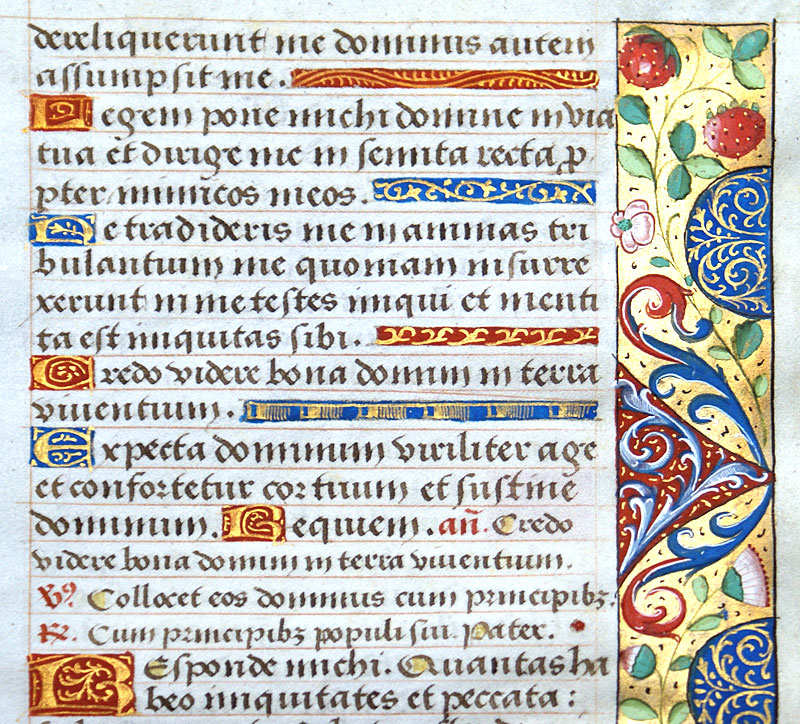 dereliquerunt me dominus autem
assumpsit me.
Legem pone michi domine in via
tua et dirige me in semita recta pro
pter inimicos meos.
Ne tradideris me in animas tri
bulantium me quoniam insurre
xerunt in me testes iniqui et menti
ta est iniquitas sibi.
Credo videre bona domini in terra
viventium.
Expecta dominum viriliter age
et confortetur cor tuum et sustine
dominum. Requiem. an̄. Credo
videre bona domini in terra viventium.
V9 Collocet eos dominus cum principibꝫ.
R. Cum principibꝫ populi sui. Pater.
Responde michi. Quantas ha
beo iniquitates et peccata: